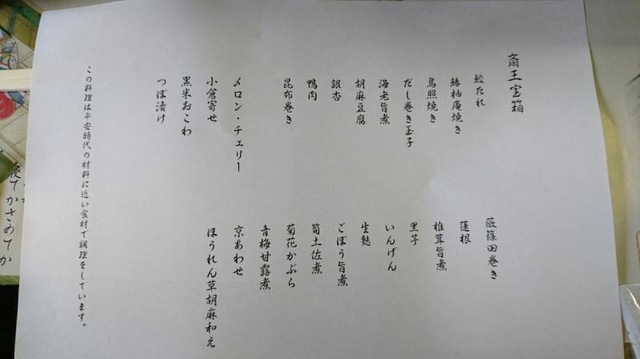 斎王宝箱
鮫たれ
鰆柚庵焼き
鳥照焼き
だし巻き玉子
海老旨煮
胡麻豆腐
銀杏
鴨肉
昆布巻き
メロン・チェリー
小倉寄せ
黒米おこわ
つぼ漬け
蕨篠田巻き
蓮根
椎茸旨煮
里芋
いんげん
生麩
ごぼう旨煮
筍土佐煮
菊花かぶら
青梅甘露煮
京あわせ
ほうれん草胡麻和え
この料理は平安時代の材料に近い食材で調理をしています。
てかさめてか